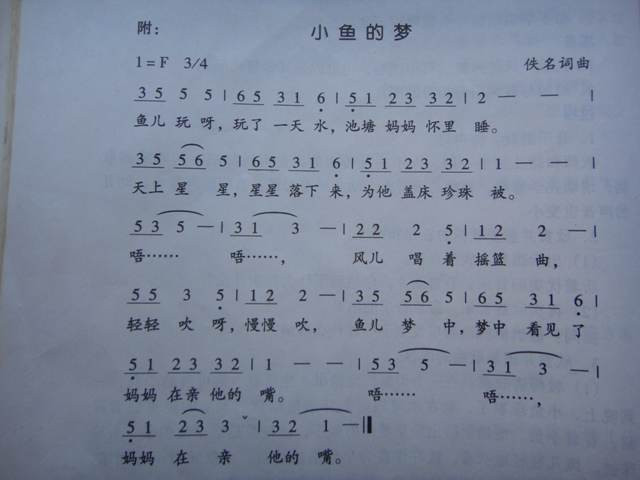 附: 小鱼的梦
1=F 3/4 佚名词曲
3 5 5 5 | 6 5 3 1 6 | 5 1 2 3 3 2 | 2 — — |
鱼儿 玩 呀, 玩了 一天 水, 池塘 妈妈 怀里 睡。
3 5 5 6 5 | 6 5 3 1 6 | 5 1 2 3 3 2 | 2 — — |
天上 星 星, 星星 落下 来, 为他 盖床 珍珠 被。
5 3 5 — | 3 1 3 — | 2 2 2 5 | 1 2 2 — |
唔…… 唔……, 风儿 唱 着 摇篮 曲,
5 5 3 5 | 1 2 2 — | 3 5 5 6 5 | 6 5 3 1 6 |
轻轻 吹 呀, 慢慢 吹, 鱼儿 梦 中, 梦中 看见 了
5 1 2 3 3 2 | 1 — — | 5 3 5 — | 3 1 3 — |
妈妈 在亲 他的 嘴。 唔…… 唔……,
5 1 2 3 3 ˇ | 3 2 1 — ‖
妈妈 在 亲 他的 嘴。